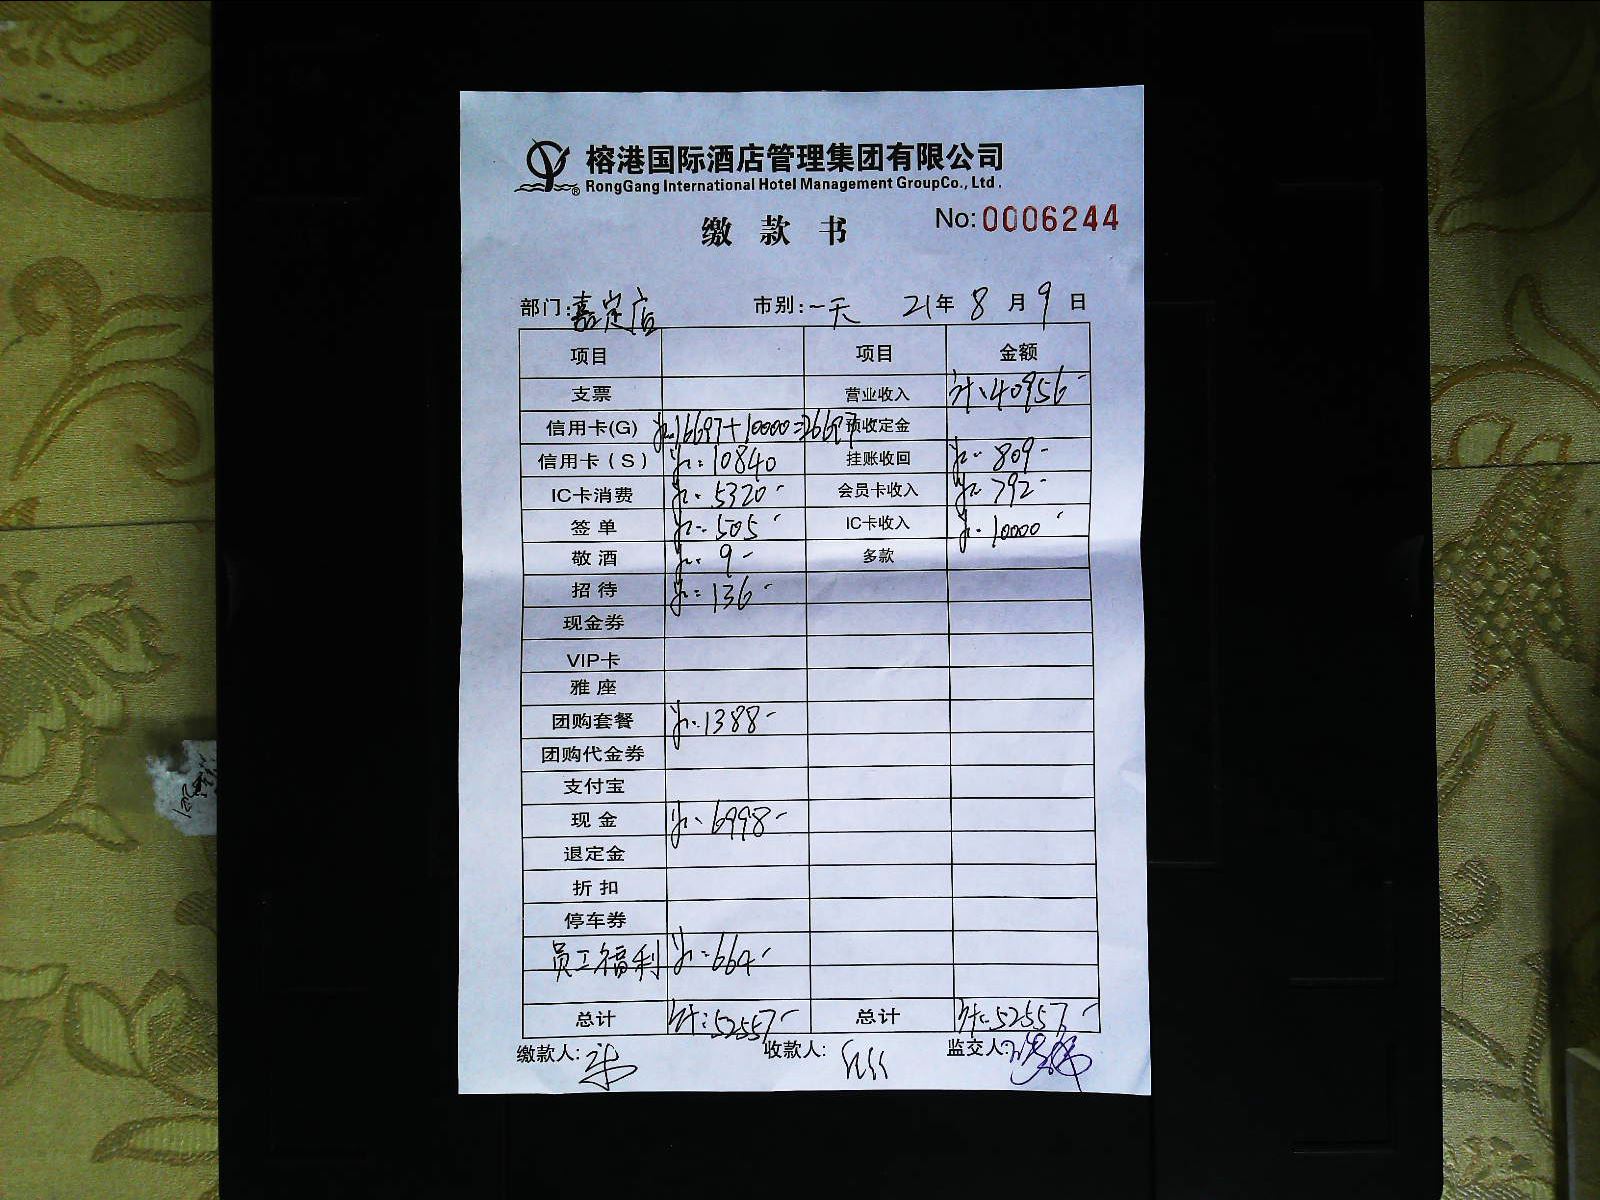 榕港国际酒店管理集团有限公司
® RongGang International Hotel Management GroupCo., Ltd.
缴款书 No: 0006244
部门: 嘉定店 市别: 一天 21年 8月 9日
项目 项目 金额
支票 营业收入 计: 40956-
信用卡(G) 16697+10000=26697 预收定金
信用卡(S) 10840 挂账收回 809-
IC卡消费 5320- 会员卡收入 792-
签单 505- IC卡收入 10000-
敬酒 9- 多款
招待 136-
现金券
VIP卡
雅座
团购套餐 1388-
团购代金券
支付宝
现金 6998-
退定金
折扣
停车券
员工福利 664-
总计 计: 52557- 总计 计: 52557-
缴款人: 收款人: 监交人: